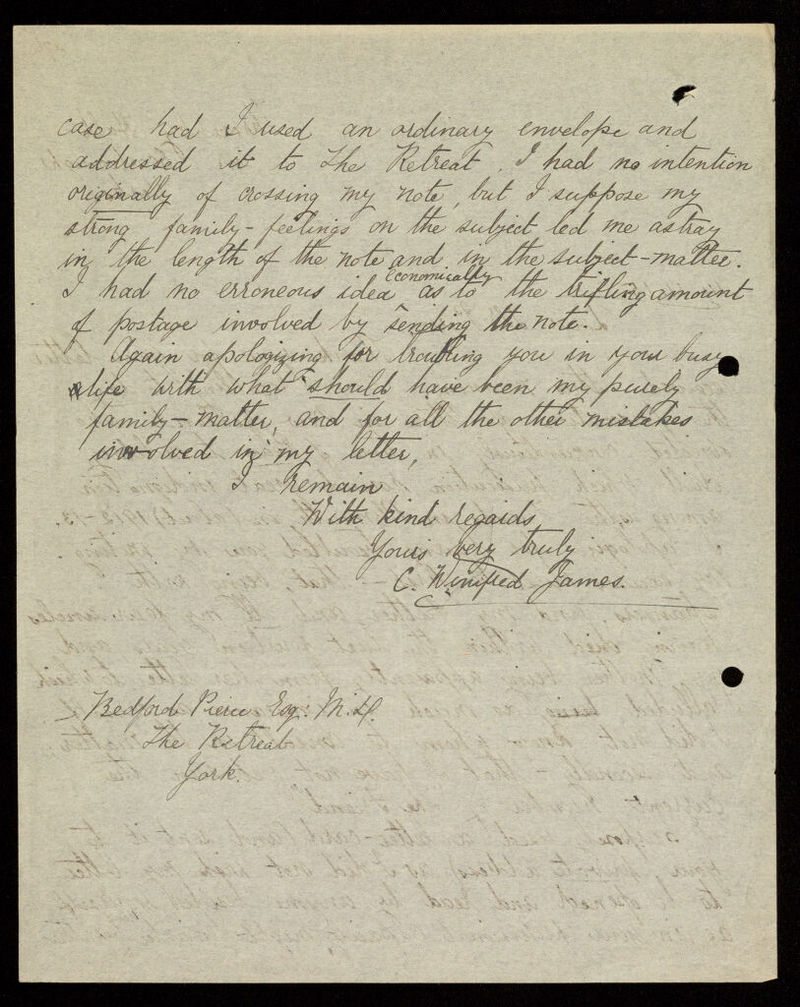 case had I used an ordinary envelope and
addressed it to The Retreat. I had no intention
originally of crossing my note, but I suppose my
strong family-feelings on the subject led me astray
in the length of the note and in the subject-matter.
I had no erroneous idea economically as to the trifling amount
of postage involved by sending the note.
Again apologizing for troubling you in your busy
life with what should have been my purely
family-matter, and for all the other mistakes
involved in my letter,
I remain
With kind regards
Yours very truly
C. Winifred James.
Bedford Pierce Esq: M.D.
The Retreat
York.